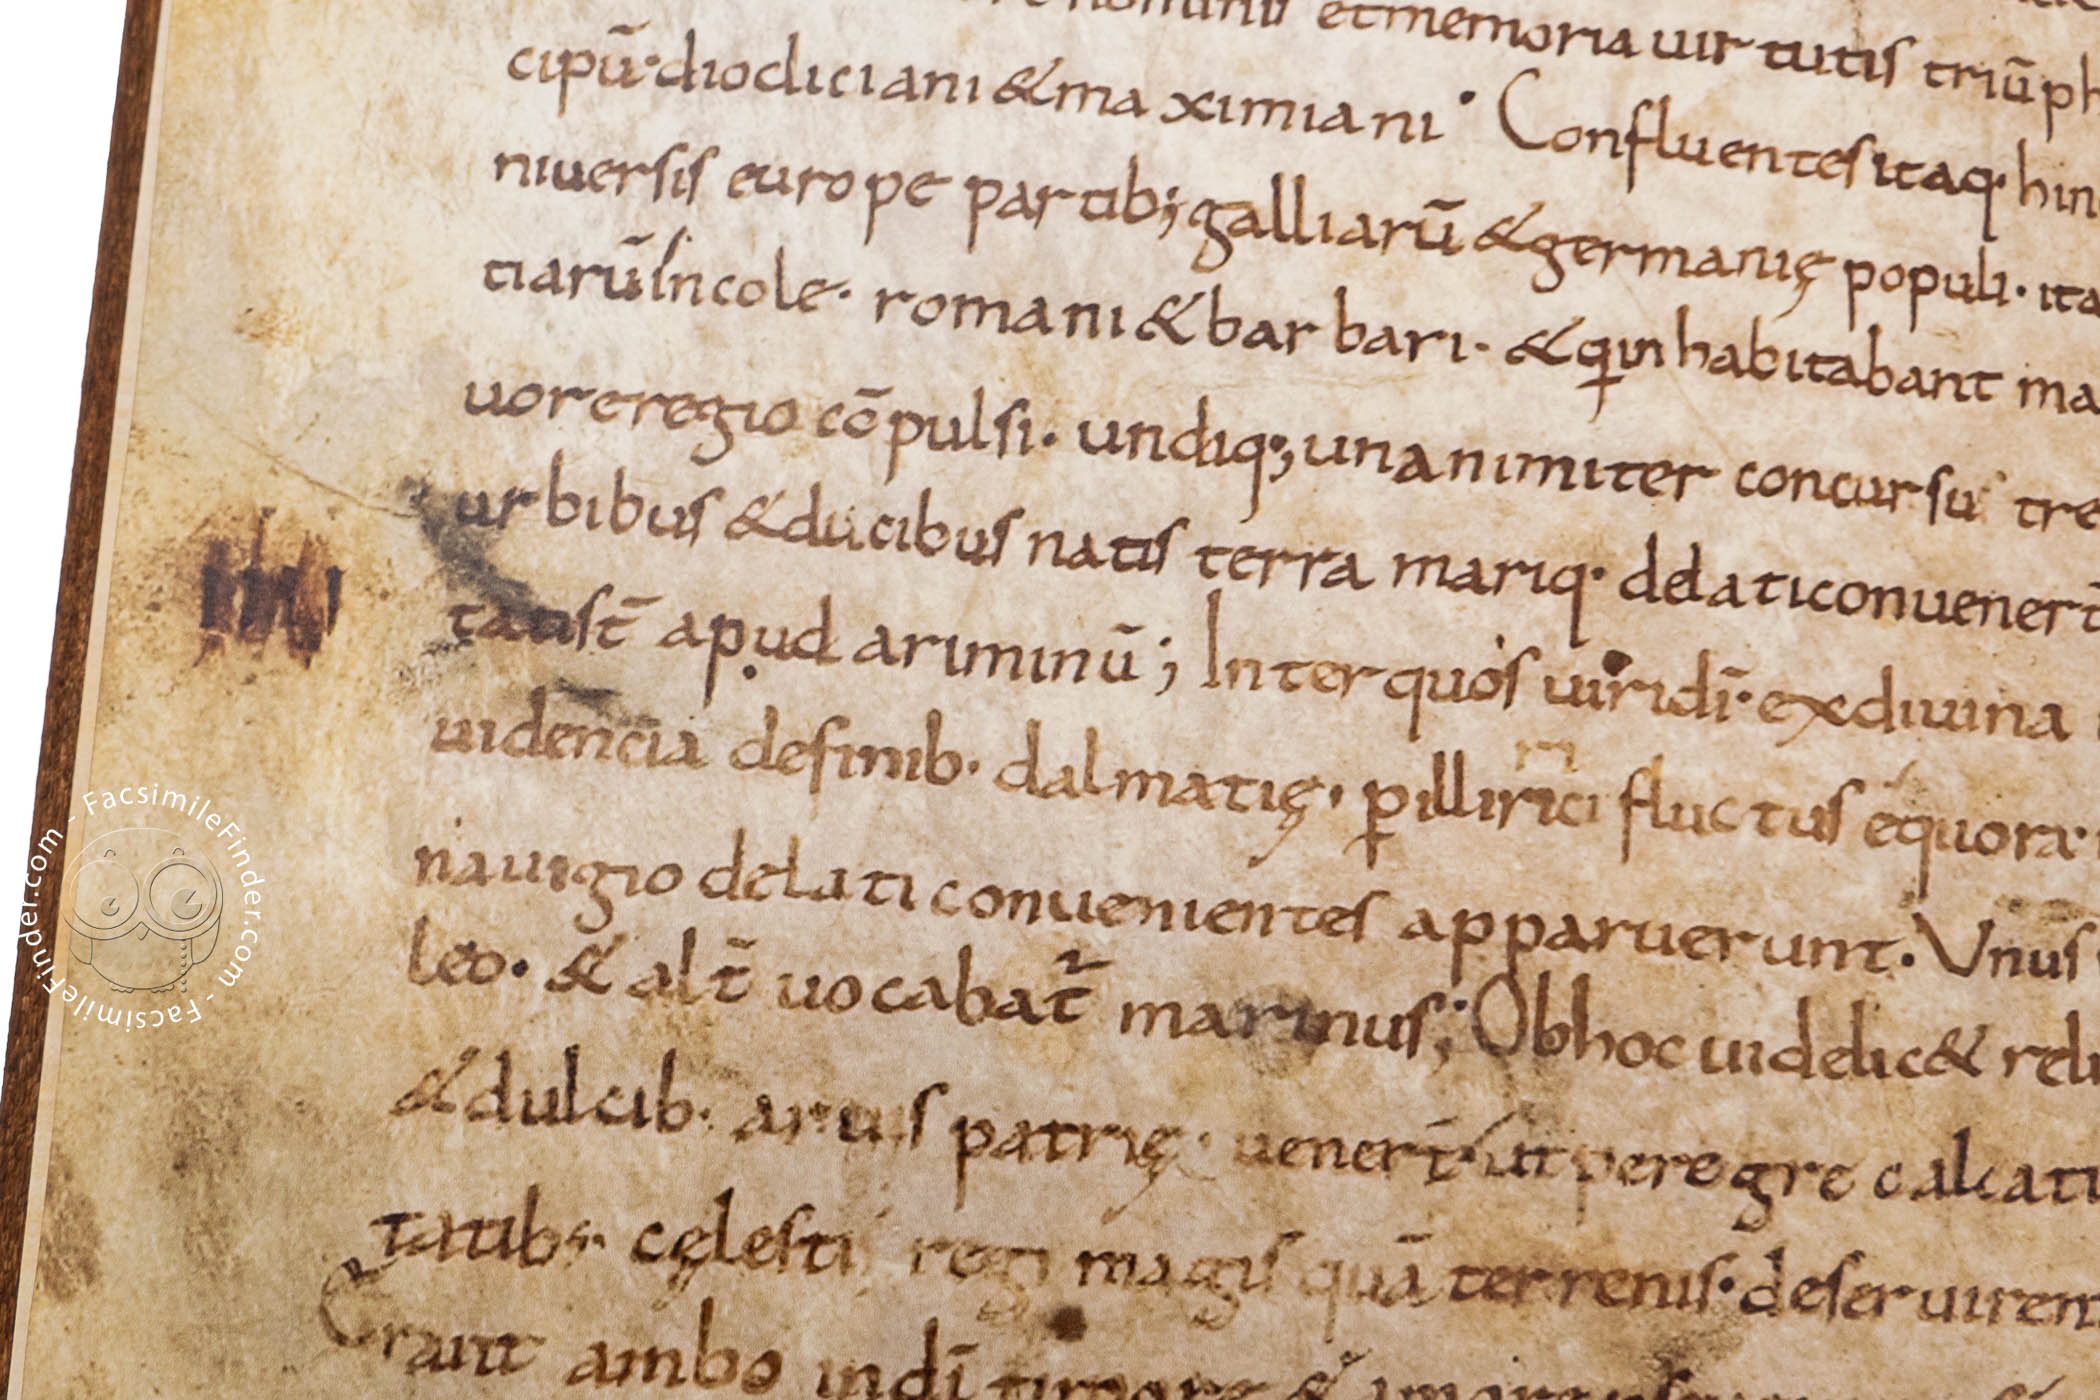 nominū et memoria uirtutis triūph
cipū· diocliciani & maximiani· Confluentes itaq· hin
niuersis europe partib; galliarū & germanię populi· ita
tiarū Incole· romani & barbari· & qui inhabitabant ma
uore regio cōpulsi· undiq; unanimiter concursu tre
urbibus & ducibus natis terra mariq· delati conuener
apud ariminū; Inter quos uiri dī· ex diuina
uidencia definib· dalmatię· p illirici fluctus équora·
nauigio delati conuenientes apparuerunt· Unus
leo· & alt̄ uocabat̄ marinus; Ob hoc uidelic& reli
& dulcib· aruis patrię· uenert̄ ut peregre calcati
tatibs· cęlesti regi magis quā terrenis· deseruiren
Erant ambo
FacsimileFinder.com - FacsimileFinder.com -